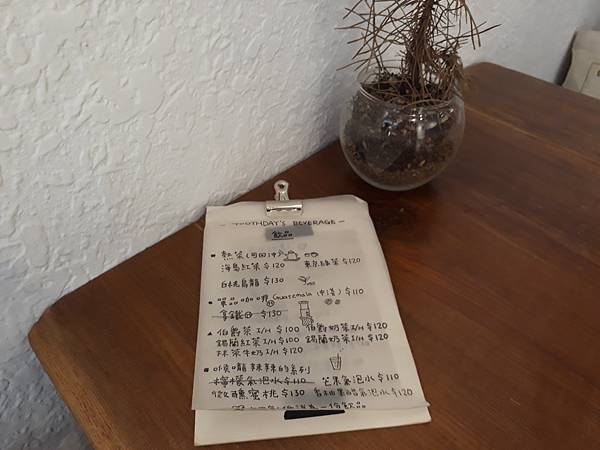 TOOTHDAY'S BEVERAGE -
飲品
熱茶(可回沖)
海鳥紅茶 $120 東京綠茶 $120
白桃烏龍 $130
單品咖啡 Guatemala (中淺) $110
拿鐵 $130
▲ 伯爵茶 I/H $100 伯爵奶茶 I/H $120
錫蘭紅茶 I/H $100 錫蘭奶茶 I/H $120
抹茶牛奶 I/H $120
系列
檸檬氣泡水 $110 芒果氣泡水 $110
蜜桃 $130 香柚果醋氣泡水 $120